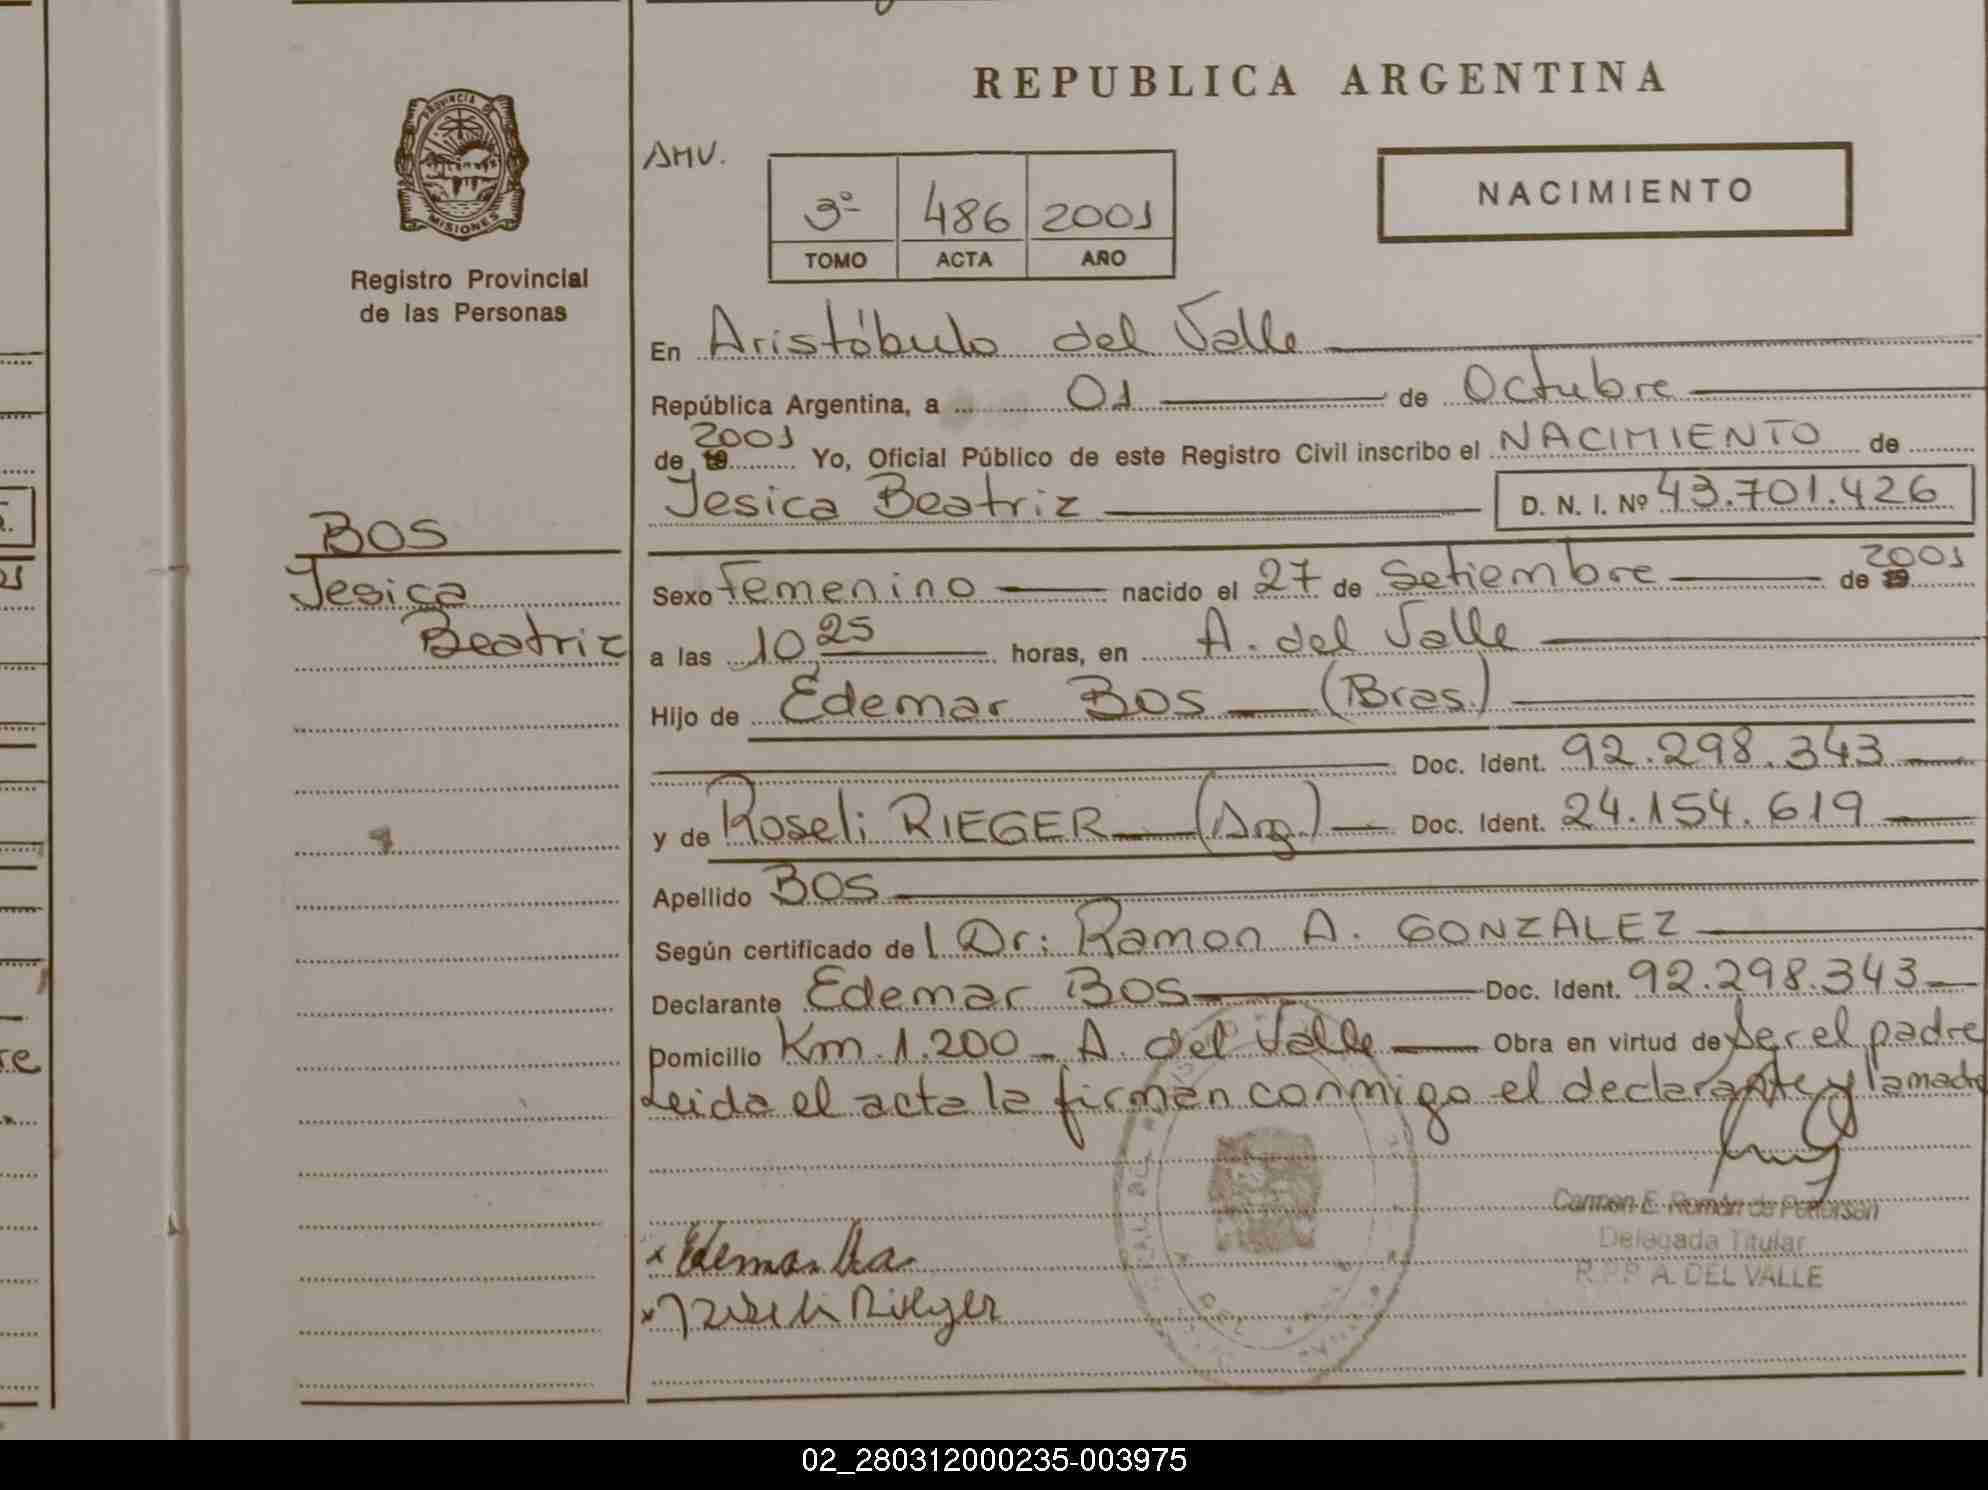 REPUBLICA ARGENTINA
PROVINCIA DE
MISIONES
Registro Provincial
de las Personas
AMV.
3º 486 2001
TOMO ACTA AÑO
NACIMIENTO
En Aristóbulo del Valle
República Argentina, a 01 de Octubre
de 19 2001 Yo, Oficial Público de este Registro Civil inscribo el NACIMIENTO de
Jesica Beatriz D. N. I. Nº 43.701.426
BOS
Jesica
Beatriz
Sexo Femenino nacido el 27 de Setiembre de 19 2001
a las 10,25 horas, en A. del Valle
Hijo de Edemar BOS (Bras)
Doc. Ident. 92.298.343
y de Roseli RIEGER (Arg.) Doc. Ident. 24.154.619
Apellido BOS
Según certificado de l Dr: Ramon A. GONZALEZ
Declarante Edemar BOS Doc. Ident. 92.298.343
Domicilio Km. 1.200 - A. del Valle Obra en virtud de Ser el padre
Leida el acta la firman conmigo el declarante y la madre
Carmen E. Román de Pettersen
Delegada Titular
R.P.P A. DEL VALLE
x Edemar
x Roseli Rieger
re
02_280312000235-003975